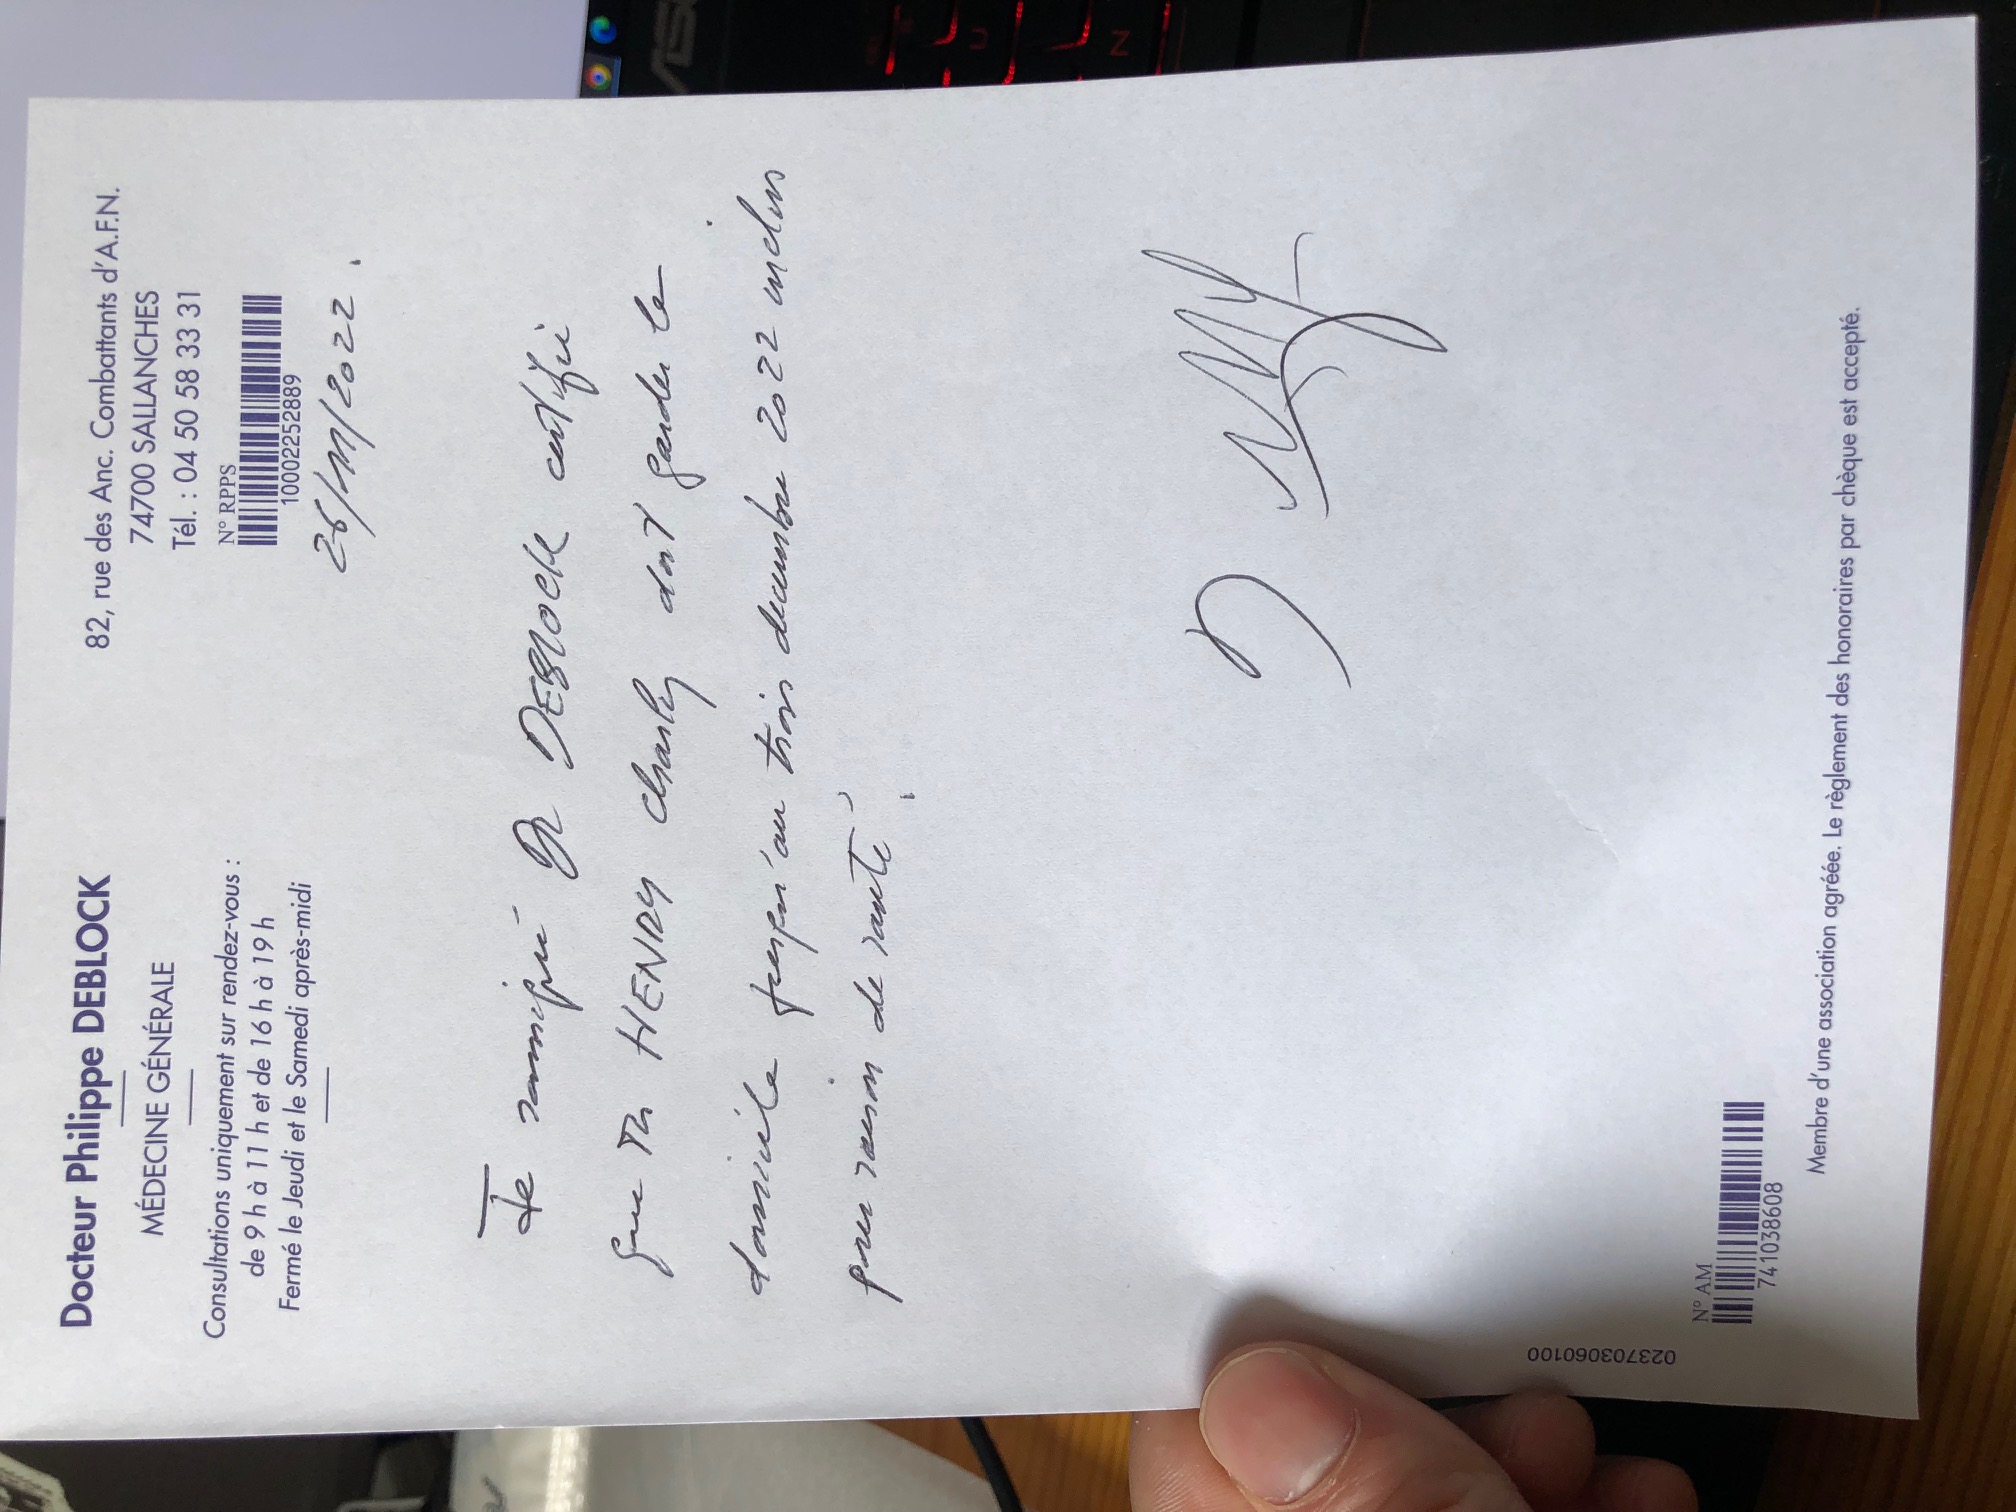 Docteur Philippe DEBLOCK
MÉDECINE GÉNÉRALE
Consultations uniquement sur rendez-vous :
de 9 h à 11 h et de 16 h à 19 h
Fermé le Jeudi et le Samedi après-midi
82, rue des Anc. Combattants d'A.F.N.
74700 SALLANCHES
Tél. : 04 50 58 33 31
N° RPPS
10002252889
26/11/2022.
Je soussigné Dr DEBLOCK certifie
que Mr HENRY Charly doit garder le
domicile jusqu'au trois decembre 2022 inclus
pour raison de santé.
023703060100
N° AM
741038608
Membre d'une association agréée. Le règlement des honoraires par chèque est accepté.